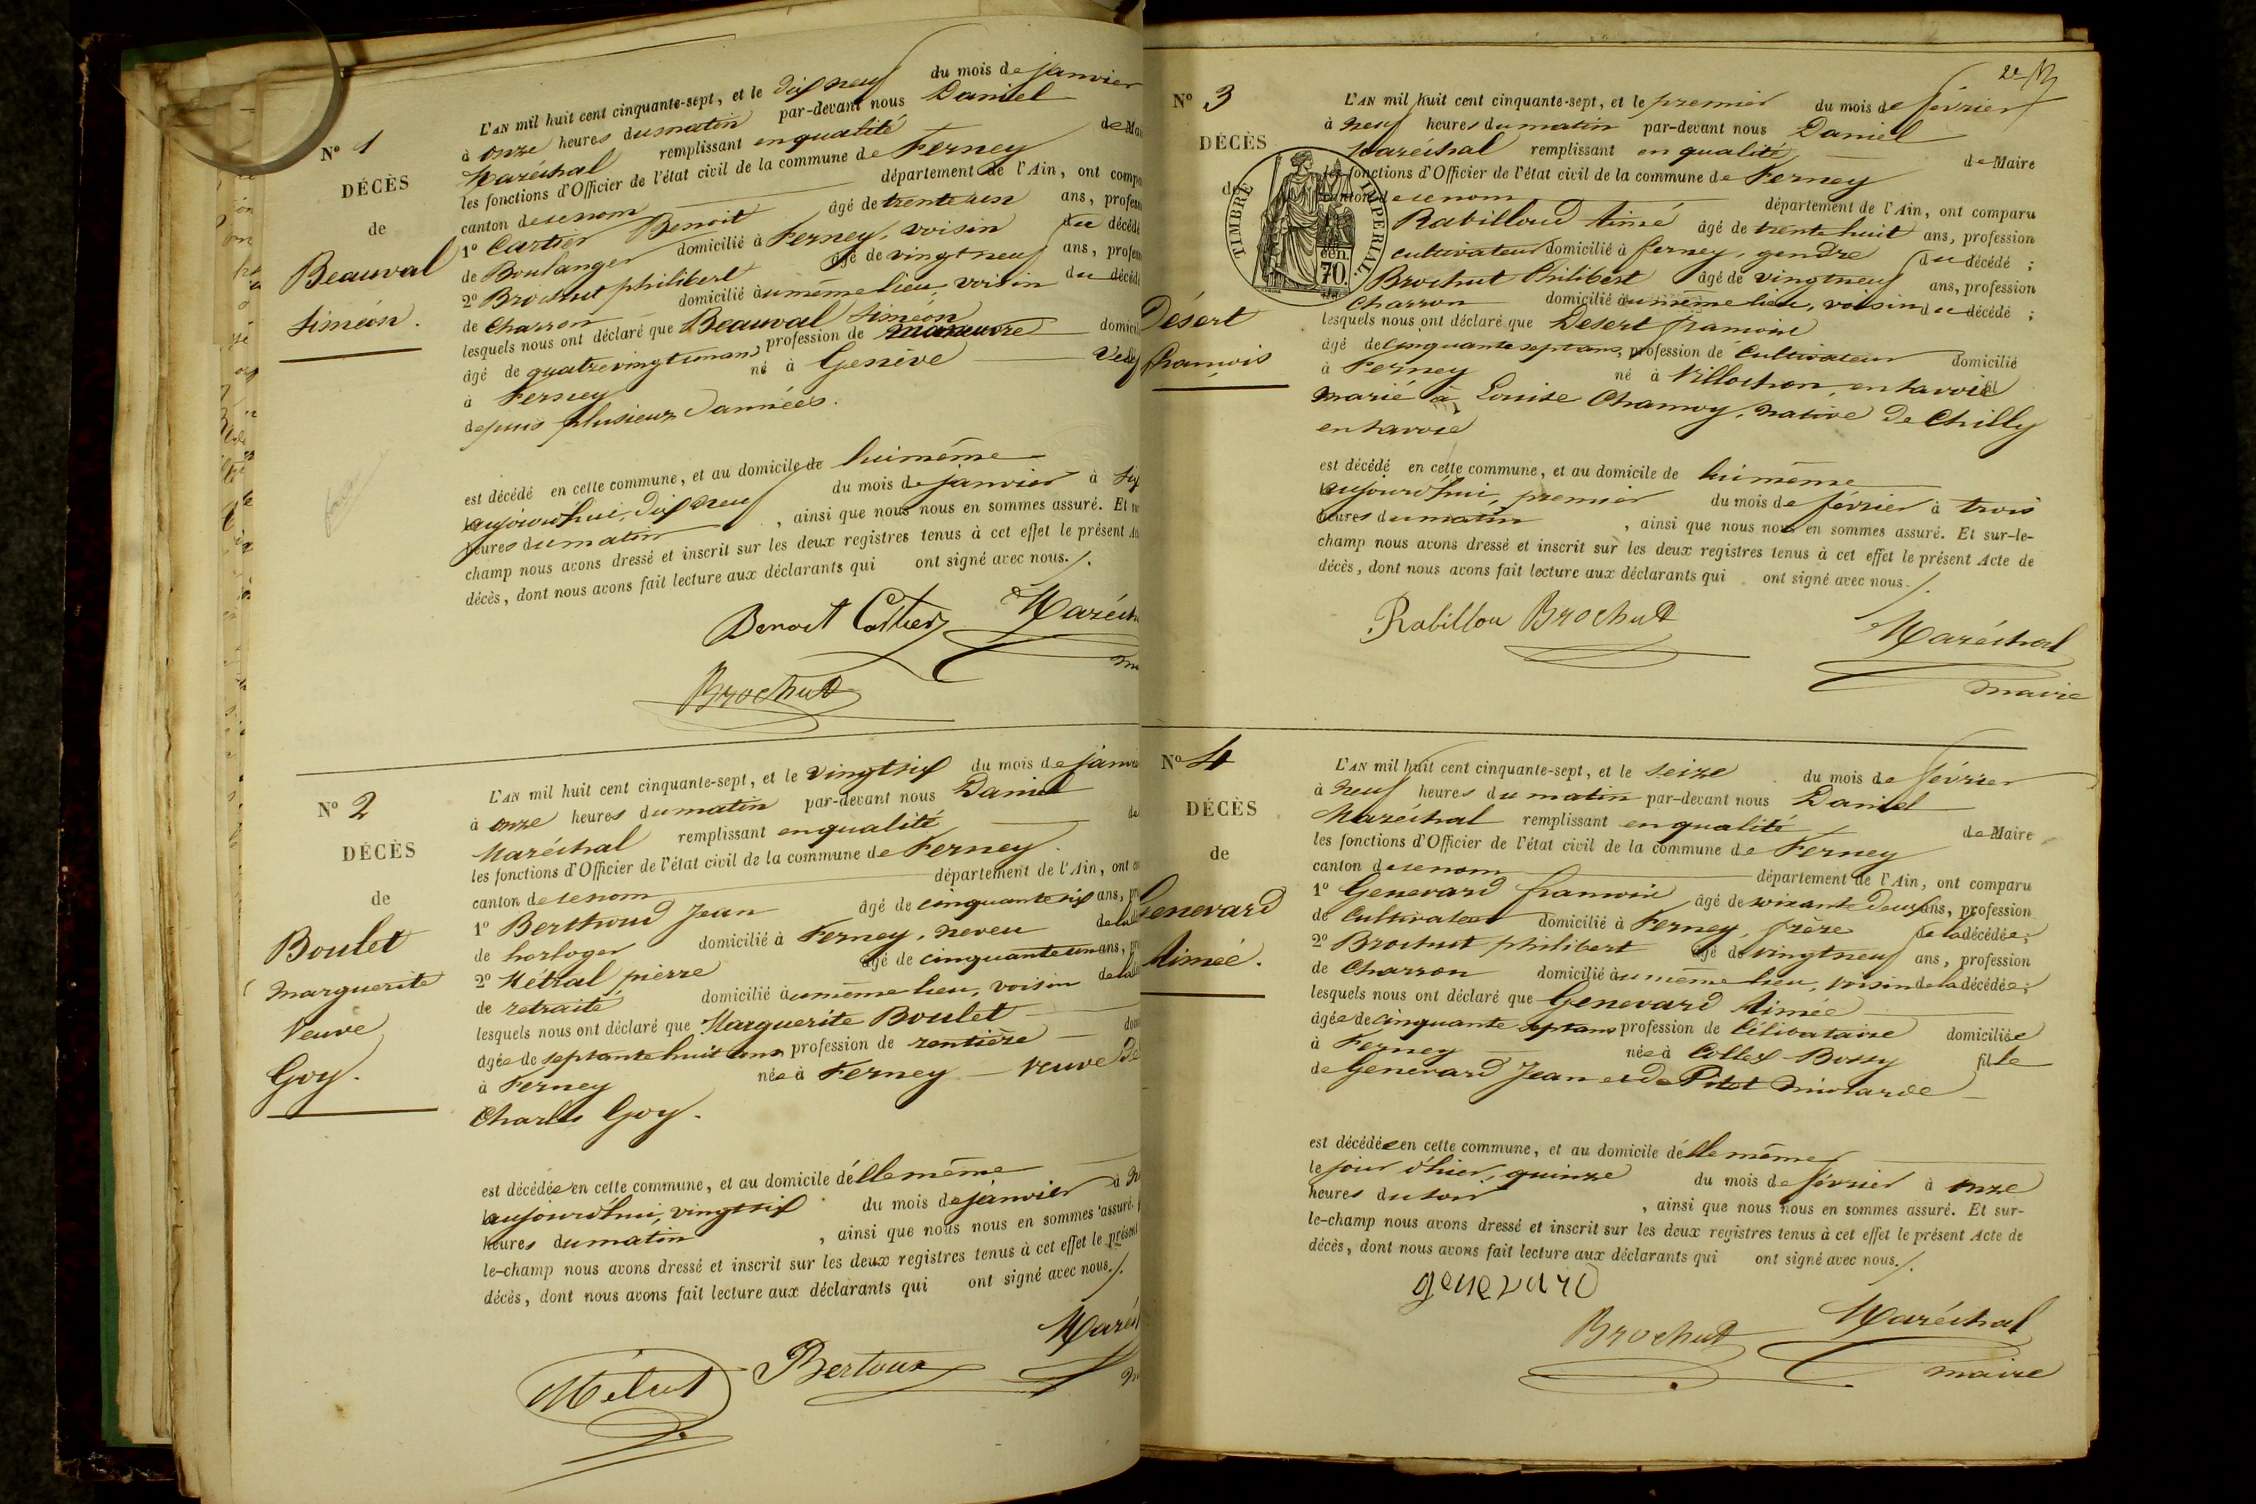 N° 1
DÉCÈS
de
Beauval
Siméon.
L'AN mil huit cent cinquante-sept, et le dix neuf du mois de janvier
à onze heures du matin par-devant nous Daniel
Maréchal remplissant en qualité de Mai
les fonctions d'Officier de l'état civil de la commune de Ferney
canton de ce nom département de l'Ain, ont compa
1° Cartier Benoit âgé de trente un ans, profess
de Boulanger domicilié à Ferney, voisin du décédé
2° Brochut philibert âgé de vingt neuf ans, profess
de Charron domicilié au même lieu voisin du décédé
lesquels nous ont déclaré que Beauval Siméon
âgé de quatre vingt un ans, profession de manœuvre domicil
à Ferney né à Genève
depuis plusieurs d'années.
est décédé en cette commune, et au domicile de lui même
aujourd'hui, dix neuf du mois de janvier à six
heures du matin, ainsi que nous nous en sommes assuré. Et
champ nous avons dressé et inscrit sur les deux registres tenus à cet effet le présent
décès, dont nous avons fait lecture aux déclarants qui ont signé avec nous./.
Benoit Cartier Maréch
Brochut
N° 2
DÉCÈS
de
Boulet
marguerite
Veuve
Goy.
L'AN mil huit cent cinquante-sept, et le vingt six du mois de janvi
à onze heures du matin par-devant nous Daniel
Maréchal remplissant en qualité de
les fonctions d'Officier de l'état civil de la commune de Ferney.
canton de ce nom département de l'Ain, ont
1° Berthoud Jean âgé de cinquante six ans, pr
de horloger domicilié à Ferney, neveu de la
2° Métral pierre âgé de cinquante un ans, pr
de retraité domicilié au même lieu, voisin de la
lesquels nous ont déclaré que Marguerite Boulet
âgée de septante huit ans profession de rentière dom
à Ferney née à Ferney — Veuve De
Charles Goy.
est décédée en cette commune, et au domicile d'élle même
aujourd'hui, vingt six du mois de janvier à
heures du matin, ainsi que nous nous en sommes assuré.
le-champ nous avons dressé et inscrit sur les deux registres tenus à cet effet le présent
décès, dont nous avons fait lecture aux déclarants qui ont signé avec nous./.
Maréc
Métral Bertoux
N° 3
DÉCÈS
de
Désert
françois
TIMBRE IMPÉRIAL.
CEN.
70.
L'AN mil huit cent cinquante-sept, et le premier du mois de février
à neuf heures du matin par-devant nous Daniel
Maréchal remplissant en qualité de Maire
les fonctions d'Officier de l'état civil de la commune de Ferney
canton de ce nom département de l'Ain, ont comparu
Rabilloud Aimé âgé de trente huit ans, profession
cultivateur domicilié à ferney, gendre du décédé ;
Brochut Philibert âgé de vingt neuf ans, profession
Charron domicilié au même lieu, voisin du décédé ;
lesquels nous ont déclaré que Désert francois
âgé de cinquante sept ans, profession de Cultivateur domicilié
à Ferney né à Villochon, en Savoie
marié à Louise Chamoy, native de Chilly
en Savoie
est décédé en cette commune, et au domicile de lui même
aujourd'hui, premier du mois de février à trois
heures du matin, ainsi que nous nous en sommes assuré. Et sur-le-
champ nous avons dressé et inscrit sur les deux registres tenus à cet effet le présent Acte de
décès, dont nous avons fait lecture aux déclarants qui ont signé avec nous./.
Rabillou Brochut
Maréchal
maire
N° 4
DÉCÈS
de
Genevard
Aimée.
L'AN mil huit cent cinquante-sept, et le seize du mois de février
à neuf heures du matin par-devant nous Daniel
Maréchal remplissant en qualité de Maire
les fonctions d'Officier de l'état civil de la commune de Ferney
canton de ce nom département de l'Ain, ont comparu
1° Genevard francois âgé de soixante deux ans, profession
de Cultivateur domicilié à Ferney, frère de la décédée ;
2° Brochut philibert âgé de vingt neuf ans, profession
de Charron domicilié au même lieu, voisin de la décédée ;
lesquels nous ont déclaré que Genevard Aimée
âgée de cinquante sept ans profession de Célibataire domiciliée
à Ferney née à Collex-Bossy fille
de Genevard Jean et de Pitot miolarde
est décédée en cette commune, et au domicile d'élle même
le jour d'hier, quinze du mois de février à onze
heures du soir, ainsi que nous nous en sommes assuré. Et sur-
le-champ nous avons dressé et inscrit sur les deux registres tenus à cet effet le présent Acte de
décès, dont nous avons fait lecture aux déclarants qui ont signé avec nous./.
genevard
Brochut Maréchal
maire